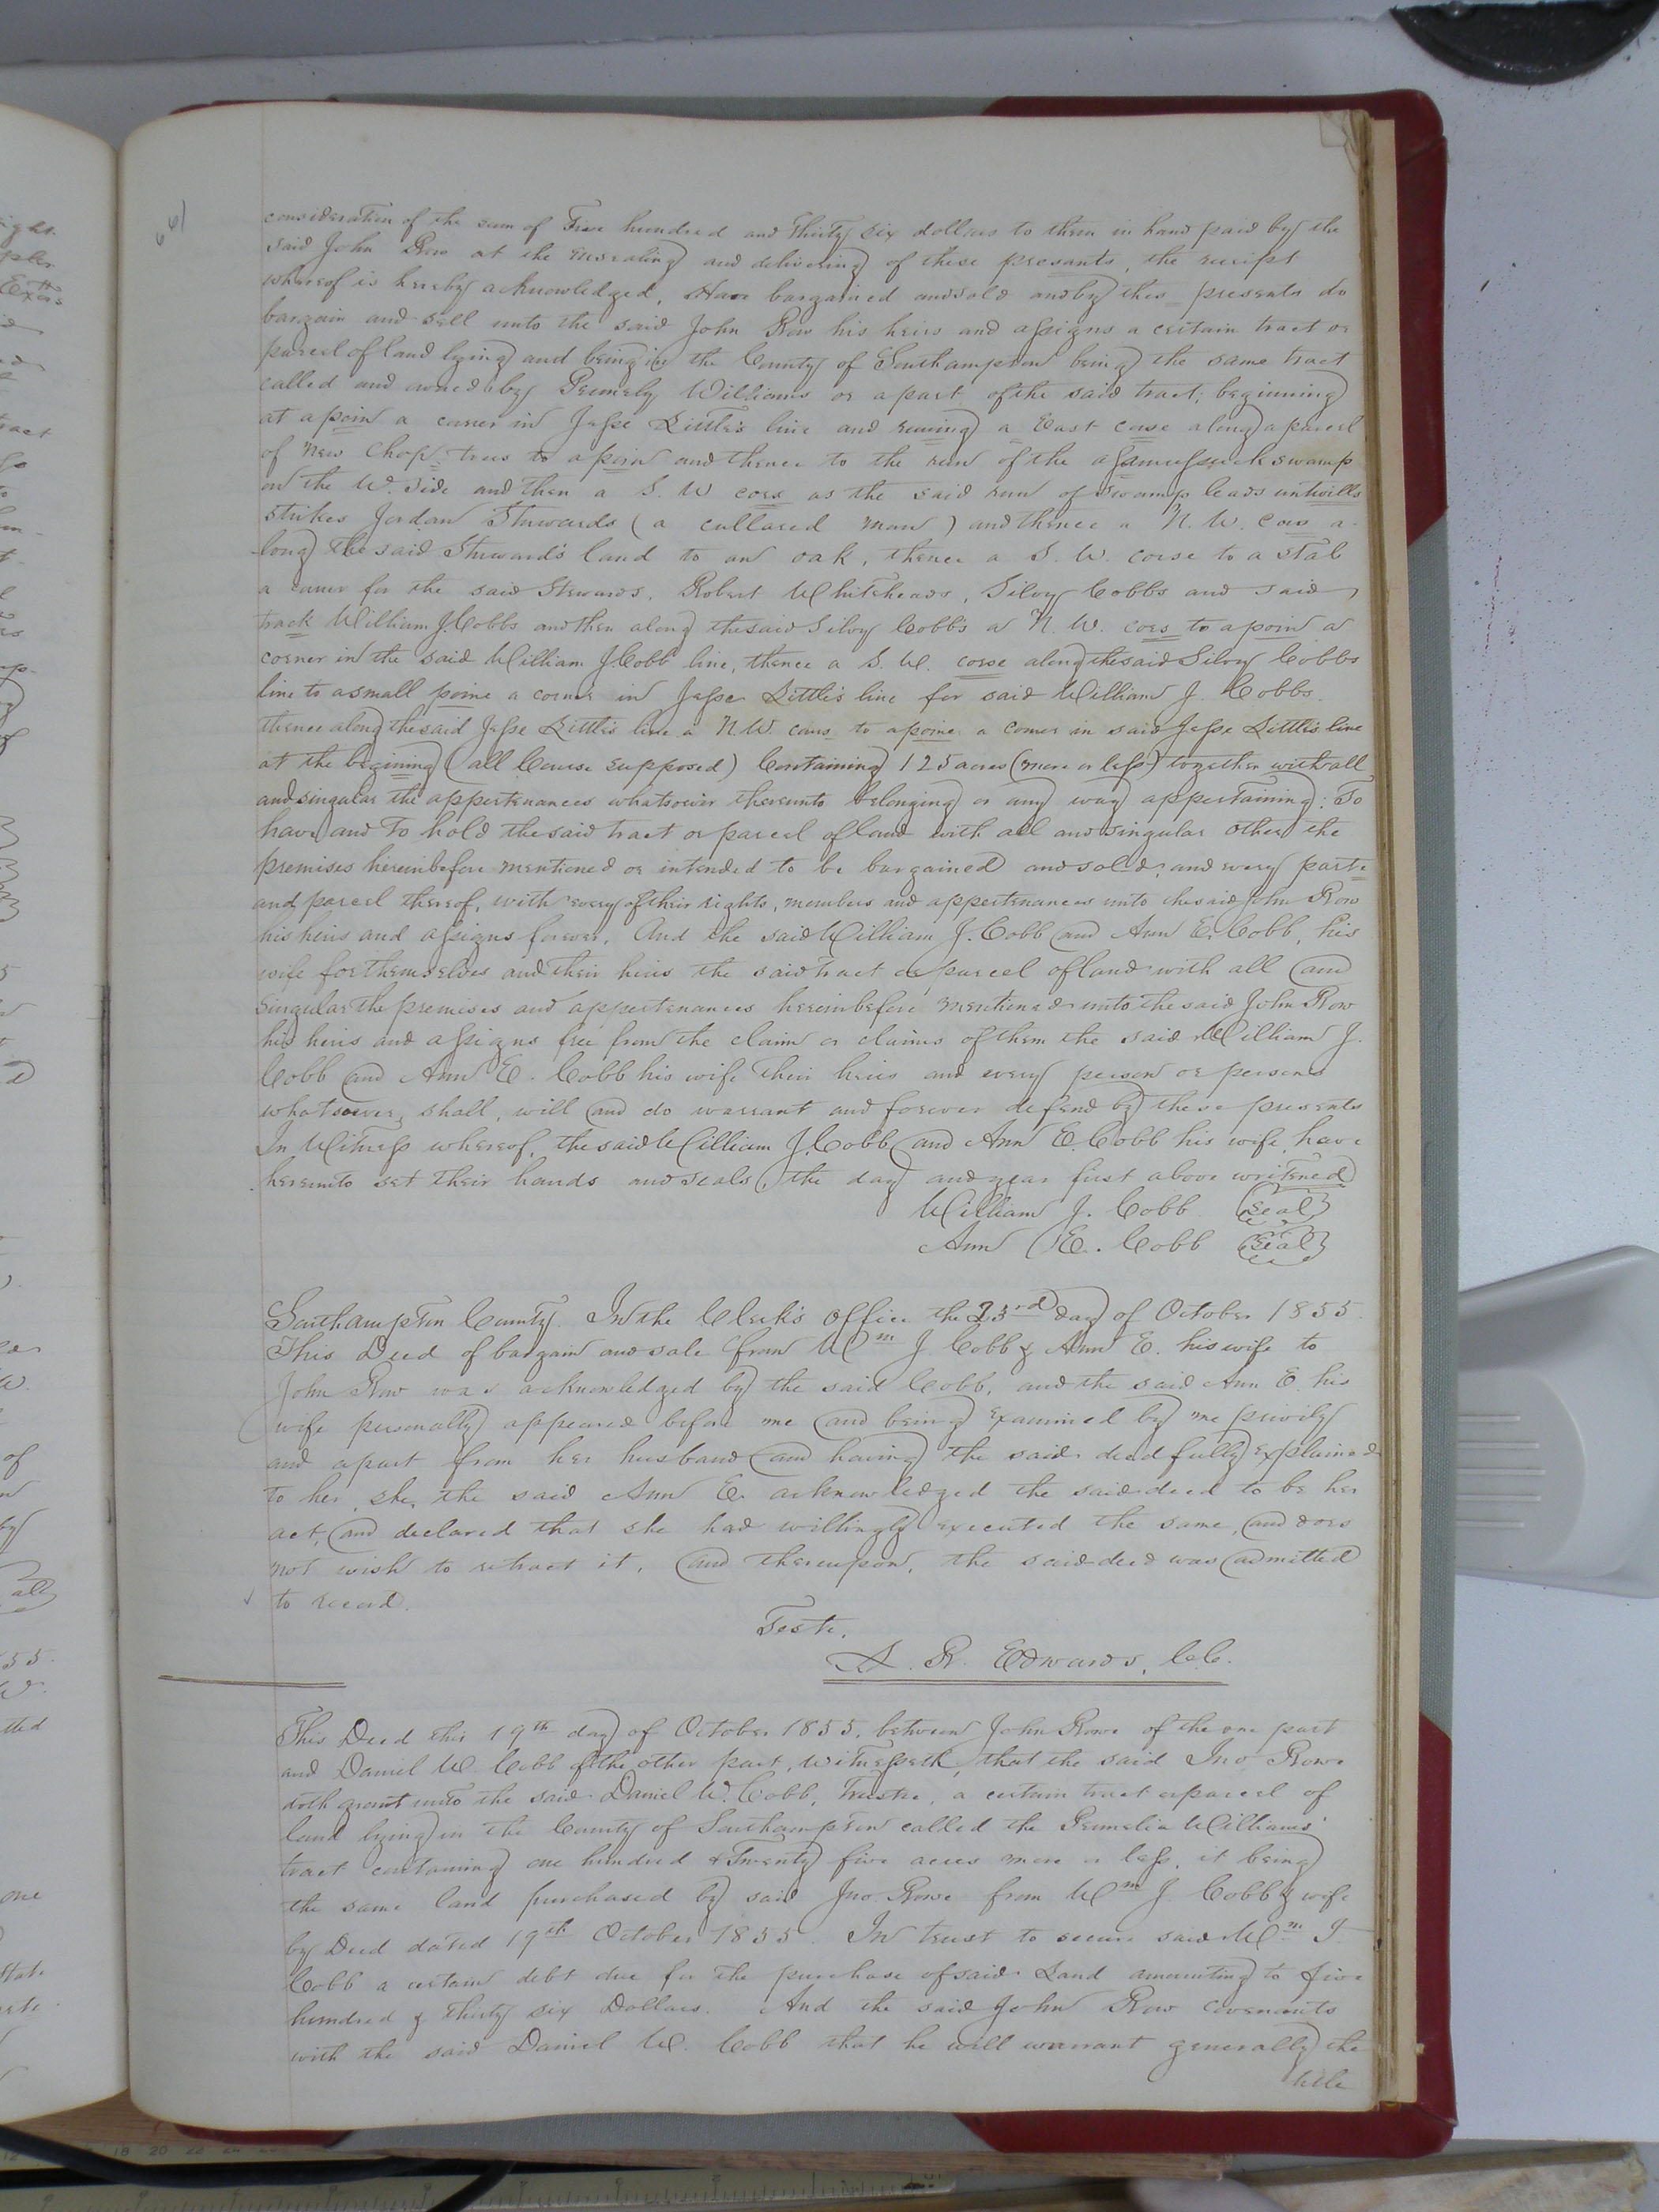 661
consideration of the sum of Five hundred and Thirty six dollars to them in hand paid by the
said John Row at the ensealing and delivering of these presants, the receipt
whereof is hereby acknowledged, Have bargained and sold and by thes presents do
bargain and sell unto the said John Row his heirs and assigns a certain tract or
parcel of land lying and being in the County of Southampton being the same tract
called and owned by Williams or a part of the said tract; beginning
at a poin a corner in Jesse Little's line and runing a East corse along a parcel
of new chop trees to a poin and thence to the run of the swamp
on the W. side and then a S. W cors as the said run of swamp leads untwills
strikes Jordan Stewards (a cullared man) and thence a N. W. cors a-
long the said Steward's land to an oak, thence a S. W. corse to a stab
a corner for the said Stewards, Robert Whiteheads, Silvy Cobbs and said
track William J. Cobbs and then along the said Silvy Cobbs a N. W. cors to a poin a
corner in the said William J Cobb line, thence a S. W. corse along the said Silvy Cobbs
line to a small poine a corner in Jesse Little's line for said William J. Cobbs.
thence along the said Jesse Little's line a N. W. cors to a poine a corner in said Jesse Little's line
at the begining (all Course supposed) Containing 125 acres (more or less) together with all
and singular the appertenances whatsoever thereunto belonging or any way appertaining: To
have and To hold the said tract or parcel of land with all and singular other the
premises hereinbefore mentioned or intended to be bargained and sold, and every parte
and parcel thereof, with every of their rights, members and appertenances unto the said John Row
his heirs and assigns forever, And the said William J. Cobb and Ann E. Cobb, his
wife for themselves and their heirs the said tract or parcel of land with all and
singular the premises and appertenances hereinbefore mentioned unto the said John Row
his heirs and assigns free from the claim or claims of them the said William J.
Cobb and Ann E. Cobb his wife their heirs and every person or persons
whatsoever, shall, will and do warrant and forever defend by these presents
In Witness whereof, the said William J. Cobb and Ann E. Cobb his wife have
hereunto set their hands and seals, the day and year first above writened
William J. Cobb (Seal)
Ann E. Cobb (Seal)
Southampton County. In the Clerk's Office the 23rd day of October 1855.
This Deed of bargain and sale from Wm J Cobb & Ann E. his wife to
John Row was acknowledged by the said Cobb, and the said Ann E. his
wife personally appeared before me and being examined by me privily
and apart from her husband and having the said deed fully explained
to her, she, the said Ann E. acknowledged the said deed to be her
act, and declared that she had willingly executed the same, and does
not wish to retract it, and thereupon, the said deed was admitted
to record.
Teste,
L. R. Edwards, C.C.
This Deed this 19th day of October 1855, between John Rowe of the one part
and Daniel W Cobb of the other part, witnesseth, that the said Jno Rowe
doth grant unto the said Daniel W. Cobb, Trustee, a certain tract or parcel of
land lying in the County of Southampton called the Williams'
tract containing one hundred & Twenty five acres more or less, it being
the same land purchased by said Jno. Rowe from Wm J. Cobb & wife
by Deed dated 19th October 1855. In trust to secure said Wm J
Cobb a certain debt due for the purchase of said Land amounting to five
hundred & thirty six Dollars. And the said John Row covenants
with the said Daniel W. Cobb that he will warrant generally the
title